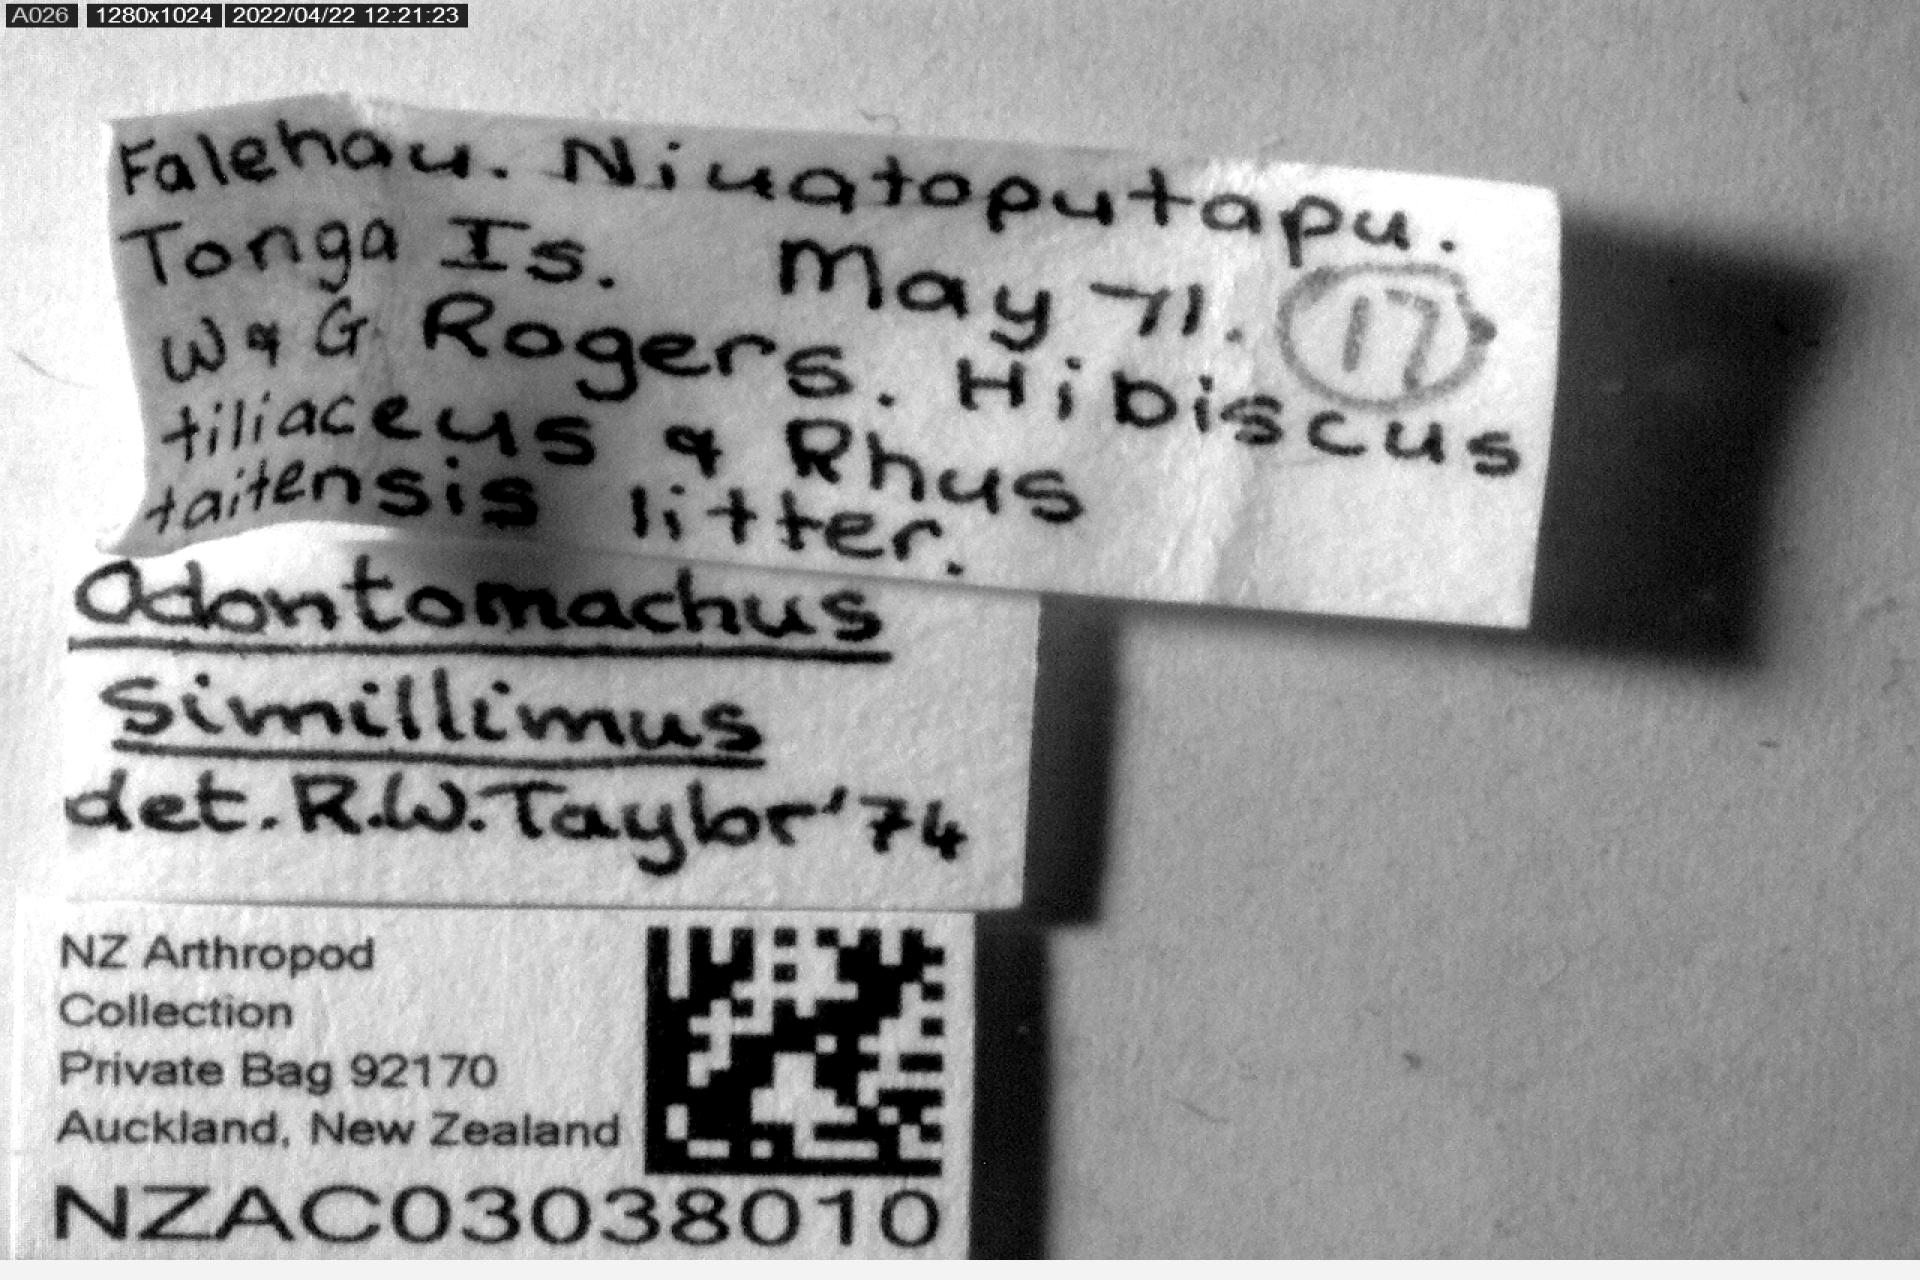 A026 1280x1024 2022/04/22 12:21:23
Falehau. Niuatoputapu.
Tonga Is. May 71. 17
W & G Rogers. Hibiscus
tiliaceus & Rhus
taitensis litter.
Odontomachus
simillimus
det. R.W. Taylor '74
NZ Arthropod
Collection
Private Bag 92170
Auckland, New Zealand
NZAC03038010